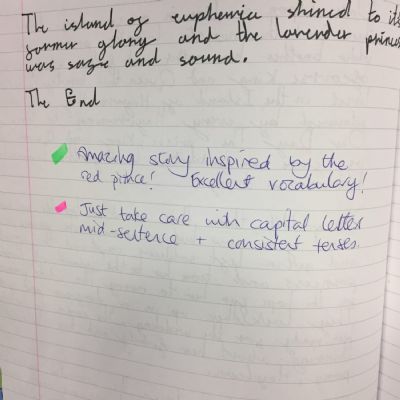 The island of euphemia shined to its
former glory and the lavender princess
was safe and sound.
The End
Amazing story inspired by the
red prince! Excellent vocabulary!
Just take care with capital letter
mid-sentence + consistent tenses